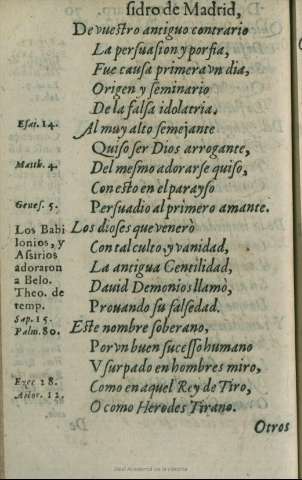 sidro de Madrid,
De vuestro antiguo contrario
La persuasion y porfia,
Fue causa primera vn dia,
Origen y seminario
De la falsa idolatria.
Esai. 14.
Al muy alto semejante
Quiso ser Dios arrogante,
Matth. 4.
Del mesmo adorarse quiso,
Con esto en el parayso
Genes. 5.
Persuadio al primero amante.
Los Babi
lonios, y
Assirios
adoraron
a Belo.
Theo. de
temp.
Los dioses que venerò
Con tal culto, y vanidad,
La antigua Gentilidad,
Dauid Demonios llamò,
Prouando su falsedad.
Sap. 15.
Psalm. 80.
Este nombre soberano,
Por vn buen sucesso humano
Vsurpado en hombres miro,
Ezec. 28.
Como en aquel Rey de Tiro,
Actor. 12.
O como Herodes Tirano.
Otros
Real Academia de la Historia